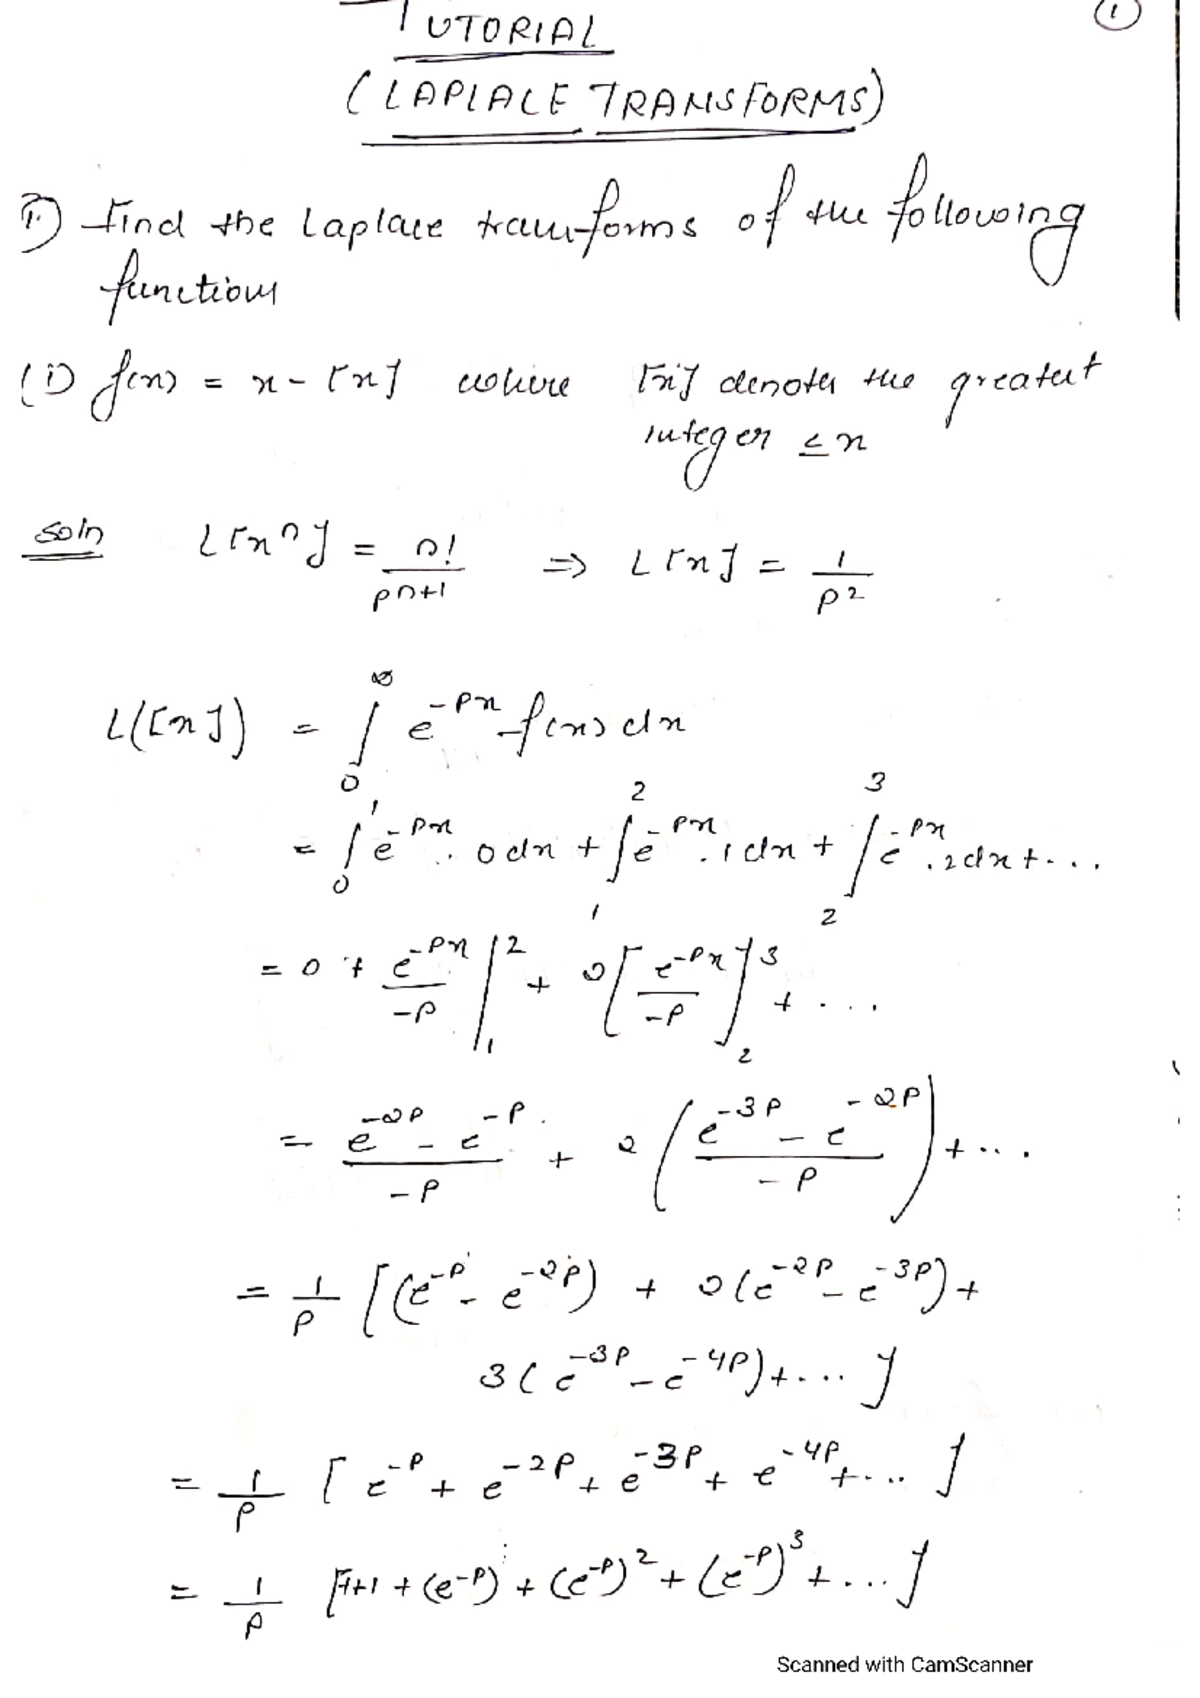 ①
TUTORIAL
(LAPLACE TRANSFORMS)
1) Find the Laplace transforms of the following
functions
(i) f(x) = x - [x] where [x] denotes the greatest
integer ≤ x
Soln L[x^n] = n!/p^(n+1) ⇒ L[x] = 1/p^2
L([x]) = ∫_0^∞ e^(-px) f(x) dx
= ∫_0^1 e^(-px) . 0 dx + ∫_1^2 e^(-px) . 1 dx + ∫_2^3 e^(-px) . 2 dx + ...
= 0 + e^(-px)/-p |_1^2 + 2[e^(-px)/-p]_2^3 + ...
= (e^(-2p) - e^(-p))/-p + 2((e^(-3p) - e^(-2p))/-p) + ...
= 1/p [(e^(-p) - e^(-2p)) + 2(e^(-2p) - e^(-3p)) +
3(e^(-3p) - e^(-4p)) + ... ]
= 1/p [e^(-p) + e^(-2p) + e^(-3p) + e^(-4p) + ... ]
= 1/p [-1+1 + (e^(-p)) + (e^(-p))^2 + (e^(-p))^3 + ... ]
Scanned with CamScanner